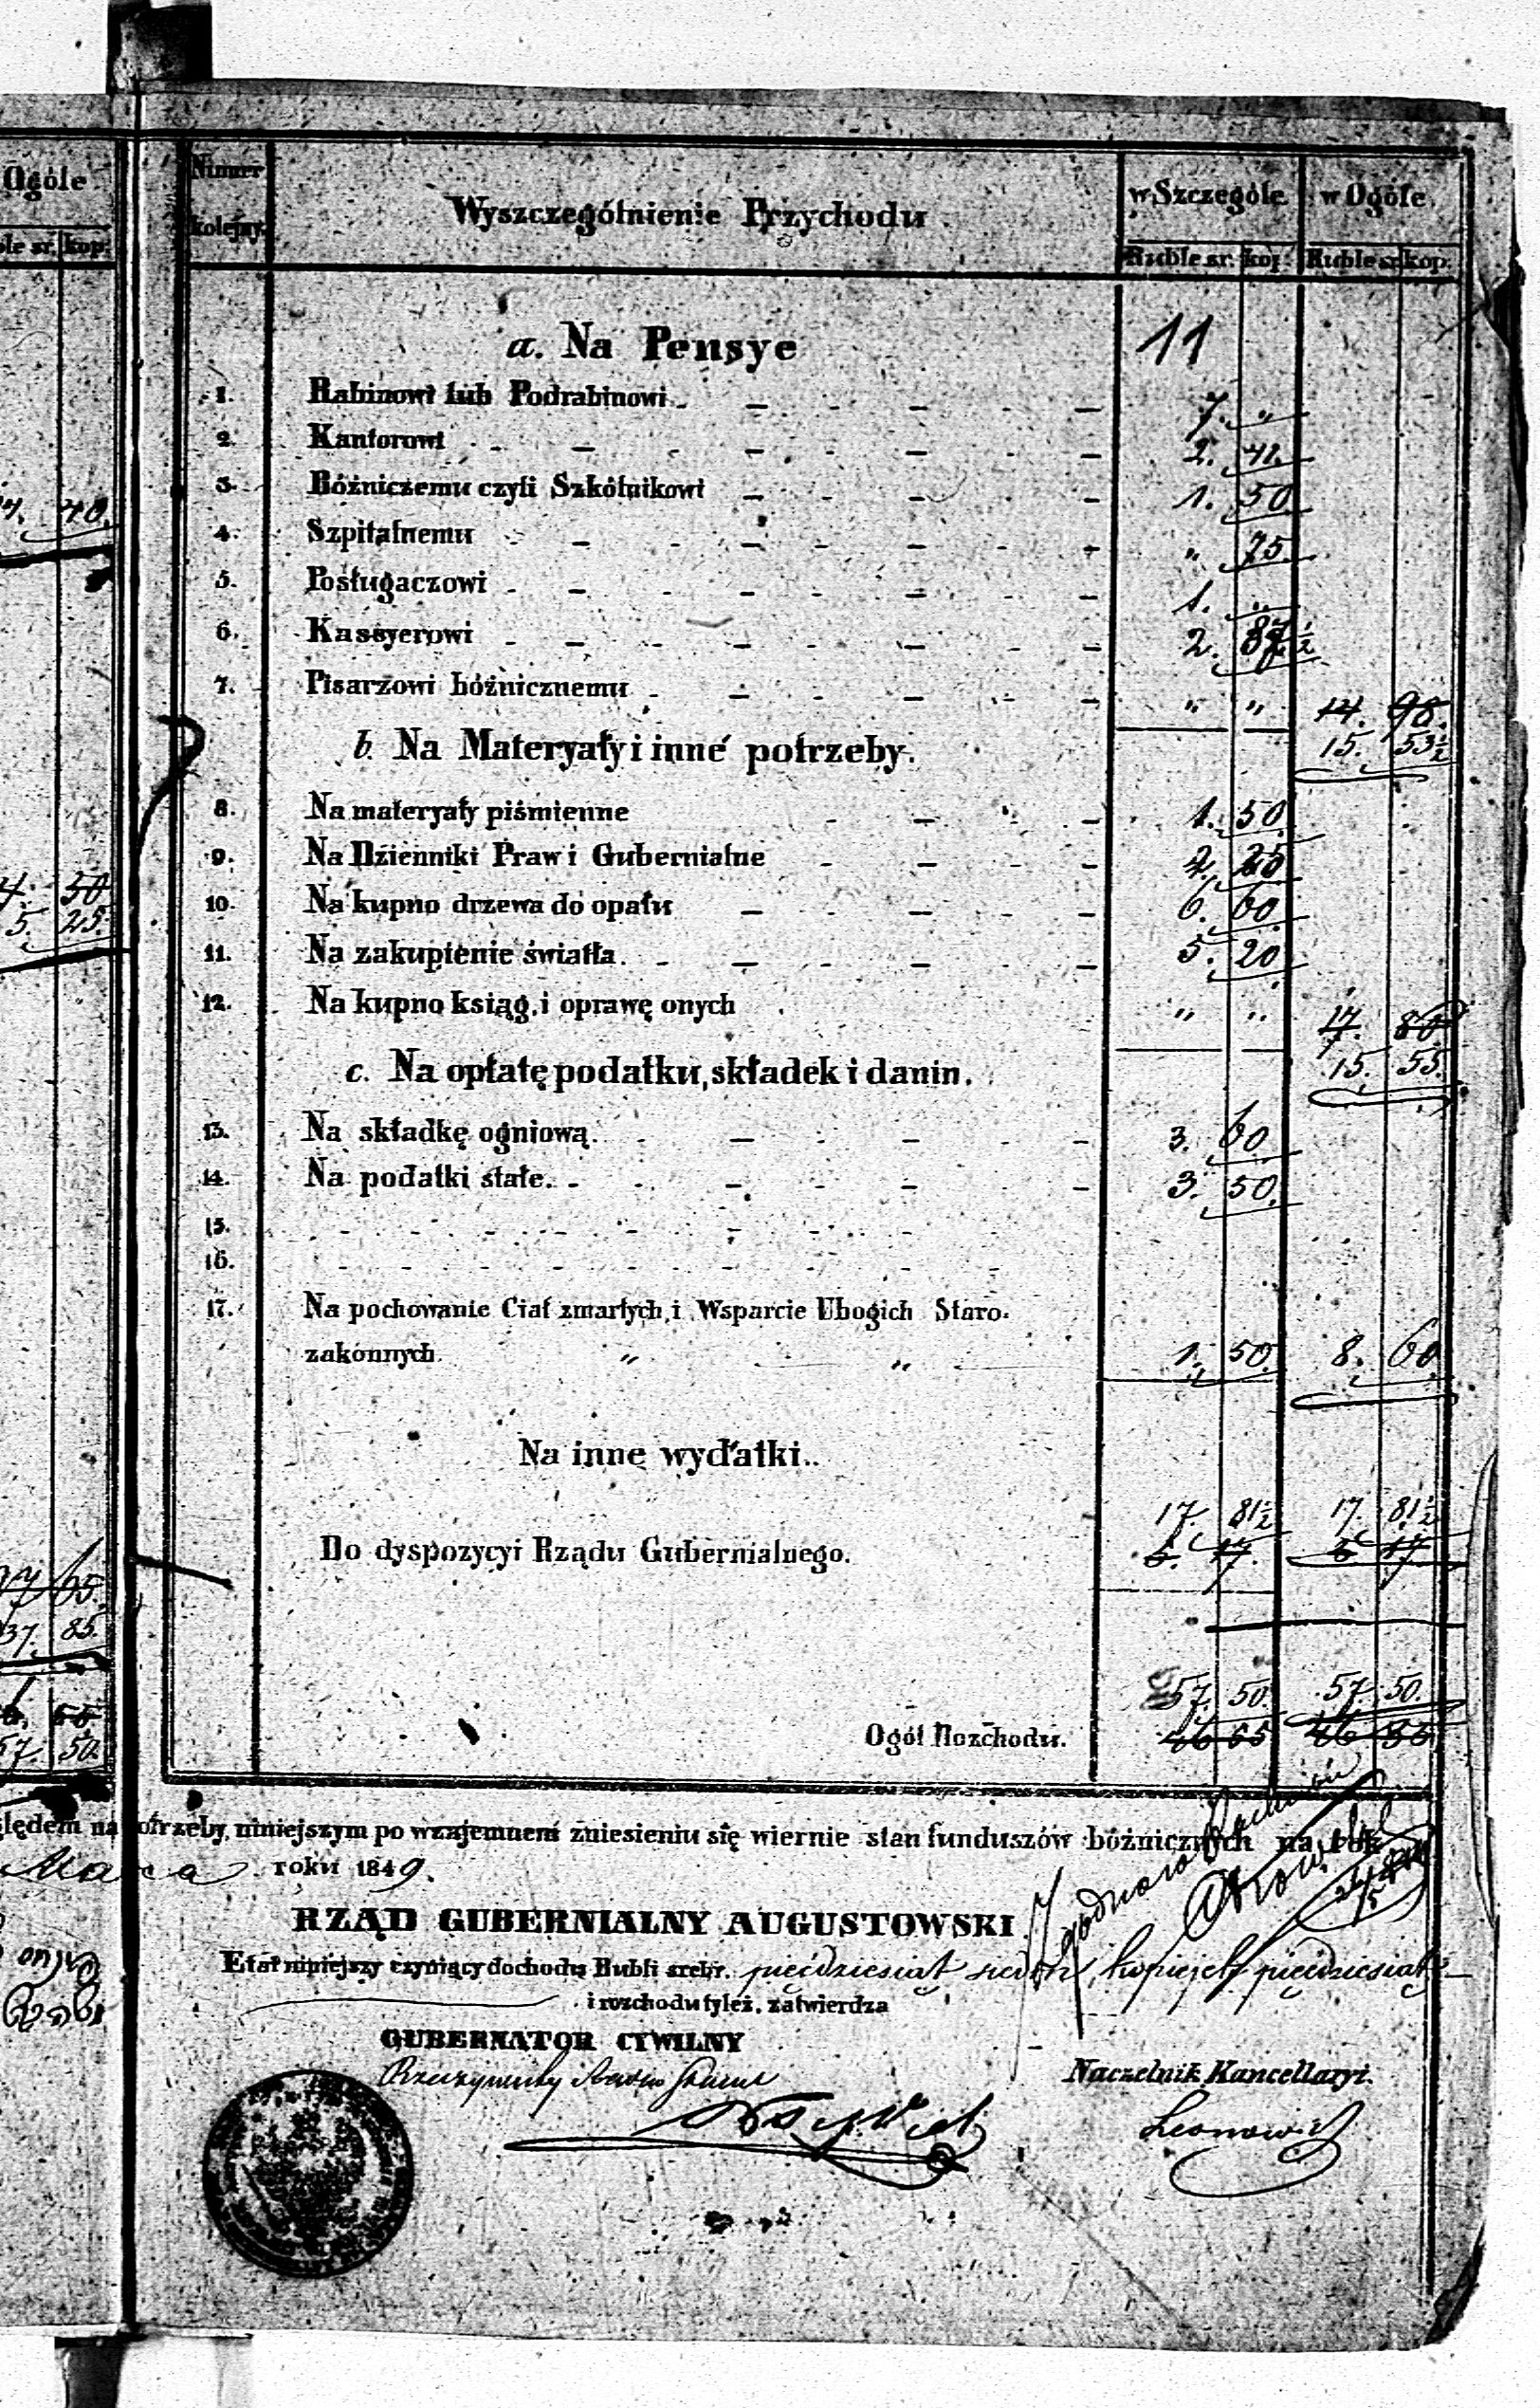 Ogóle
Numer kolejny. Wyszczególnienie Przychodu. w Szczególe. w Ogóle.
ble sr. kop. Ruble sr. kop. Ruble sr. kop.
a. Na Pensye 11
1. Rabinowi lub Podrabinowi 7. "
2. Kantorowi 2. 41.
3. Bóźniczemu czyli Szkólnikowi 1. 50
4. Szpitalnemu " 75.
4. 40.
5. Posługaczowi 1. "
6. Kassyerowi 2. 87½
7. Pisarzowi bóźnicznemu " " 14. 98.
15. 53½
b. Na Materyały i inné potrzeby.
8. Na materyały piśmienne 1. 50.
9. Na Dzienniki Praw i Gubernialne 2. 25
4. 50
10. Na kupno drzewa do opału 6. 60.
5. 25.
11. Na zakupienie światła. 5. 20
12. Na kupno ksiąg, i oprawę onych " " 17. 80
15. 55.
c. Na opłatę podatku, składek i danin.
13. Na składkę ogniową. 3. 60
14. Na podatki stałe. 3. 50.
15.
16.
17. Na pochowanie Ciał zmarłych, i Wsparcie Ubogich Staro-
zakonnych " " 1. 50. 8. 60
Na inne wydatki..
17. 81½ 17. 81½
Do dyspozycyi Rządu Gubernialnego. 5. 17. 5 17
65.
37. 85.
57. 50. 57. 50
55.
Ogół Rozchodu. 46 65 46 65
57. 50.
ględem na potrzeby, niniejszym po wzajemnem zniesieniu się wiernie stan funduszów bóźnicznych na rok
Marca roku 1849.
RZĄD GUBERNIALNY AUGUSTOWSKI
Etat niniejszy czyniący dochodu Rubli srebr. pięćdziesiąt siedm, kopiejek pięćdziesiąt
i rozchodu tyleż, zatwierdza
GUBERNATOR CYWILNY
Rzeczywisty Radca Stanu
Naczelnik Kancellaryi.
Leonowicz